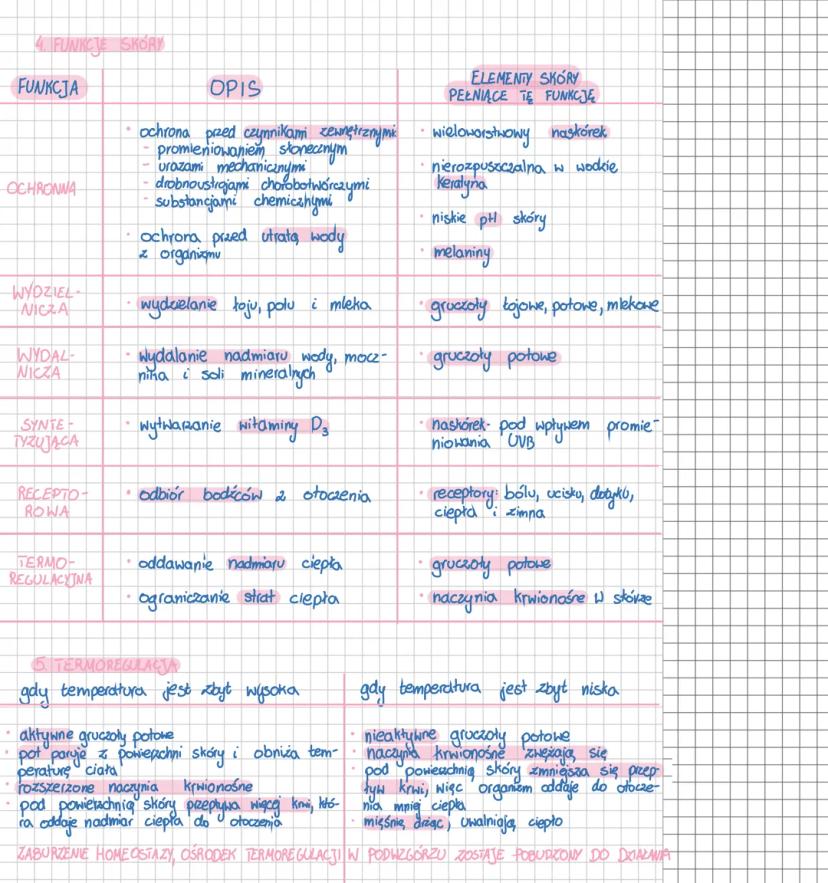 4. FUNKCJE SKÓRY
FUNKCJA
OPIS
ELEMENTY SKÓRY
PEŁNIĄCE TĘ FUNKCJĘ
OCHRONNA
• ochrona przed czynnikami zewnętrznymi
- promieniowaniem słonecznym
- urazami mechanicznymi
- drobnoustrojami chorobotwórczymi
- substancjami chemicznymi
• ochrona przed utratą wody
z organizmu
• wielowarstwowy naskórek
• nierozpuszczalna w wodzie
keratyna
• niskie pH skóry
• melaniny
WYDZIEL-
NICZA
• wydzielanie łoju, potu i mleka
• gruczoły łojowe, potowe, mlekowe
WYDAL-
NICZA
• wydalanie nadmiaru wody, mocz-
nika i soli mineralnych
• gruczoły potowe
SYNTE-
TYZUJĄCA
• wytwarzanie witaminy D3
• naskórek- pod wpływem promie-
niowania UVB
RECEPTO-
ROWA
• odbiór bodźców z otoczenia
• receptory: bólu, ucisku, dotyku,
ciepła i zimna
TERMO-
REGULACYJNA
• oddawanie nadmiaru ciepła
• ograniczanie strat ciepła
• gruczoły potowe
• naczynia krwionośne w skórze
5. TERMOREGULACJA
gdy temperatura jest zbyt wysoka
• aktywne gruczoły potowe
• pot paruje z powierzchni skóry i obniża tem-
peraturę ciała
• rozszerzone naczynia krwionośne
• pod powierzchnią skóry przepływa więcej krwi, któ-
ra oddaje nadmiar ciepła do otoczenia
gdy temperatura jest zbyt niska
• nieaktywne gruczoły potowe
• naczynia krwionośne zwężają się
• pod powierzchnią skóry zmniejsza się przep-
ływ krwi, więc organizm oddaje do otocze-
nia mniej ciepła
• mięśnie, drżąc, uwalniają ciepło
ZABURZENIE HOMEOSTAZY, OŚRODEK TERMOREGULACJI W PODWZGÓRZU ZOSTAJE POBUDZONY DO DZIAŁANIA